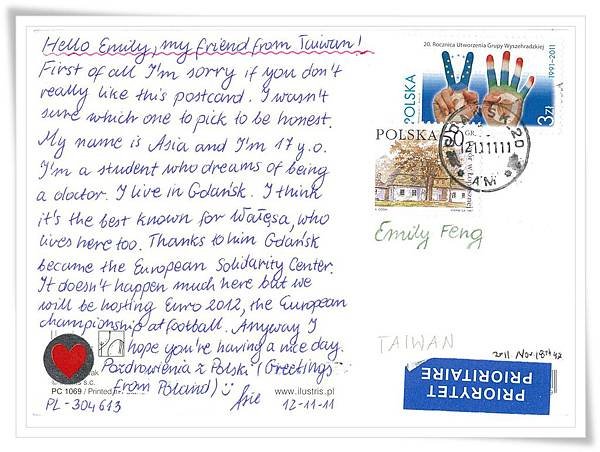 Hello Emily, my friend from Taiwan!
First of all I'm sorry if you don't
really like this postcard. I wasn't
sure which one to pick to be honest.
My name is Asia and I'm 17 y.o.
I'm a student who dreams of being
a doctor. I live in Gdańsk. I think
it's the best known for Wałęsa, who
lives here too. Thanks to him Gdańsk
became the European Solidarity Center.
It doesn't happen much here but we
will be hosting Euro 2012, the European
championship at football. Anyway I
hope you're having a nice day.
Pozdrowienia z Polski (Greetings
from Poland)
PC 1069 / Printed
www.ilustris.pl
PL-304613
12-11-11
20. Rocznica Utworzenia Grupy Wyszehradzkiej
1991-2011
POLSKA
3 ZŁ
POLSKA
GR
GDAŃSK 20
Emily Feng
TAIWAN
2011 Nov 18th
PRIORYTET
PRIORITAIRE